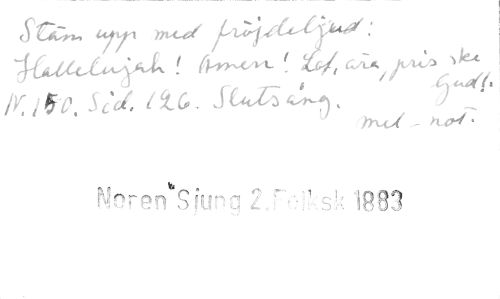 Stäm upp med fröjdeljud:
Hallelujah! Amen! Lof, ära, pris ske
Gud!.
N. 150. Sid. 126. Slutsång.
mel-not.
Noren "Sjung 2.Folksk 1883